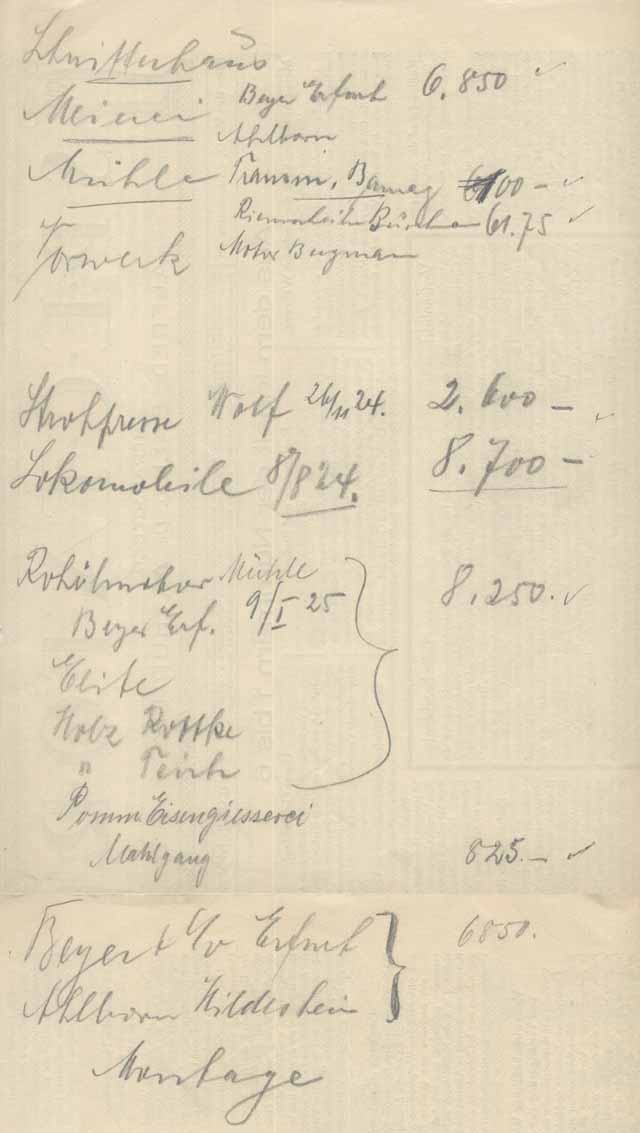 Schnitterhaus
Meierei Beyer Erfurt 6.850
Ahlborn
Mühle Transm. Bamag 6100 -
Riemenscheibe 61.75
Vorwerk Motor Bergmann
Strohpresse Wolf 26/11 24. 2.600 -
Lokomobile 8/8 24. 8.700 -
Rohölmotor Mühle 8.250.
Beyer Erf. 9/I 25
Elite
Holz Rottke
"
Pomm. Eisengiesserei
Mahlgang 825.-
Beyer & Co Erfurt 6850.
Ahlborn Hildesheim
Montage